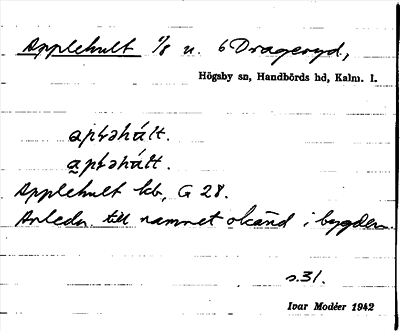 Applehult 1/8 n. 6 Drageryd,
Högsby sn, Handbörds hd, Kalm. l.
apləhált.
apləhált.
Applehult kb, G 28.
Anledn. till namnet okänd i bygden.
s. 31.
Ivar Modéer 1942